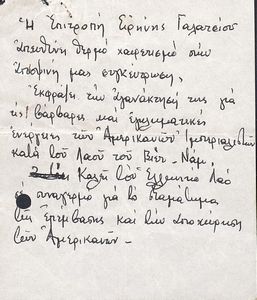 Ἡ Ἐπιτροπή Εἰρήνης Γαλατσίου
ἀπευθύνη θερμό χαιρετισμό στήν
ἀποψινή μας συγκέντρωση,
Ἐκφράζει τήν ἀγανάκτησή της γιά
τίς βάρβαρες και ἐγκληματικές
ἐνέργειες τῶν Ἀμερικανῶν Ἰμπεριαλιστῶν
κατά τοῦ Λαοῦ τοῦ Βιέτ-Νάμ,
Καλεῖ τόν Ἑλληνικό Λαό
σέ συναγερμό γιά τό σταμάτημα
τῆς ἐπέμβασης και τήν ἀποχώρηση
τῶν Ἀμερικανῶν-